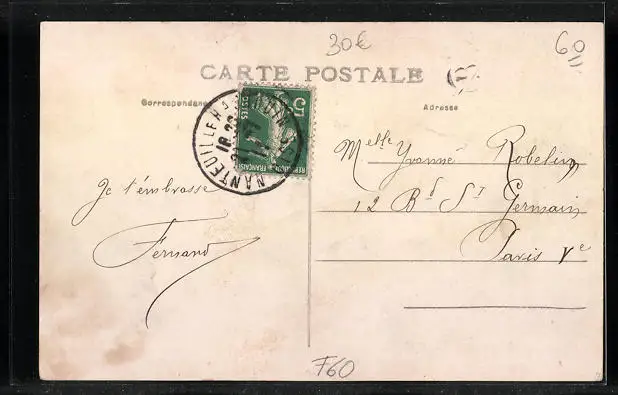 30€
60
CARTE POSTALE
Correspondance
Adresse
NANTEUILLE HAUDOUIN
5
POSTES
REPUBLIQUE FRANÇAISE
Melle Yvonne Robelin
12 Bd St Germain
Paris Ve
Je t'embrasse
Fernand
F60